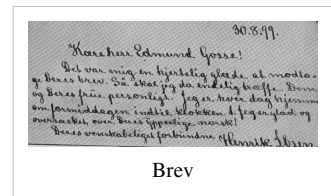 30.8.99.
Kære herr Edmund Gosse!
Det var mig en hjertelig glæde at modta-
ge Deres brev. Så skal jeg da endelig træffe Dem
og Deres frue personligt. Jeg er hver dag hjemme
om formiddagen indtil klokken 1. Jeg er glad og
overrasket over Deres ypperlige norsk!
Deres venskabeligst forbundne
Henrik Ibsen
Brev